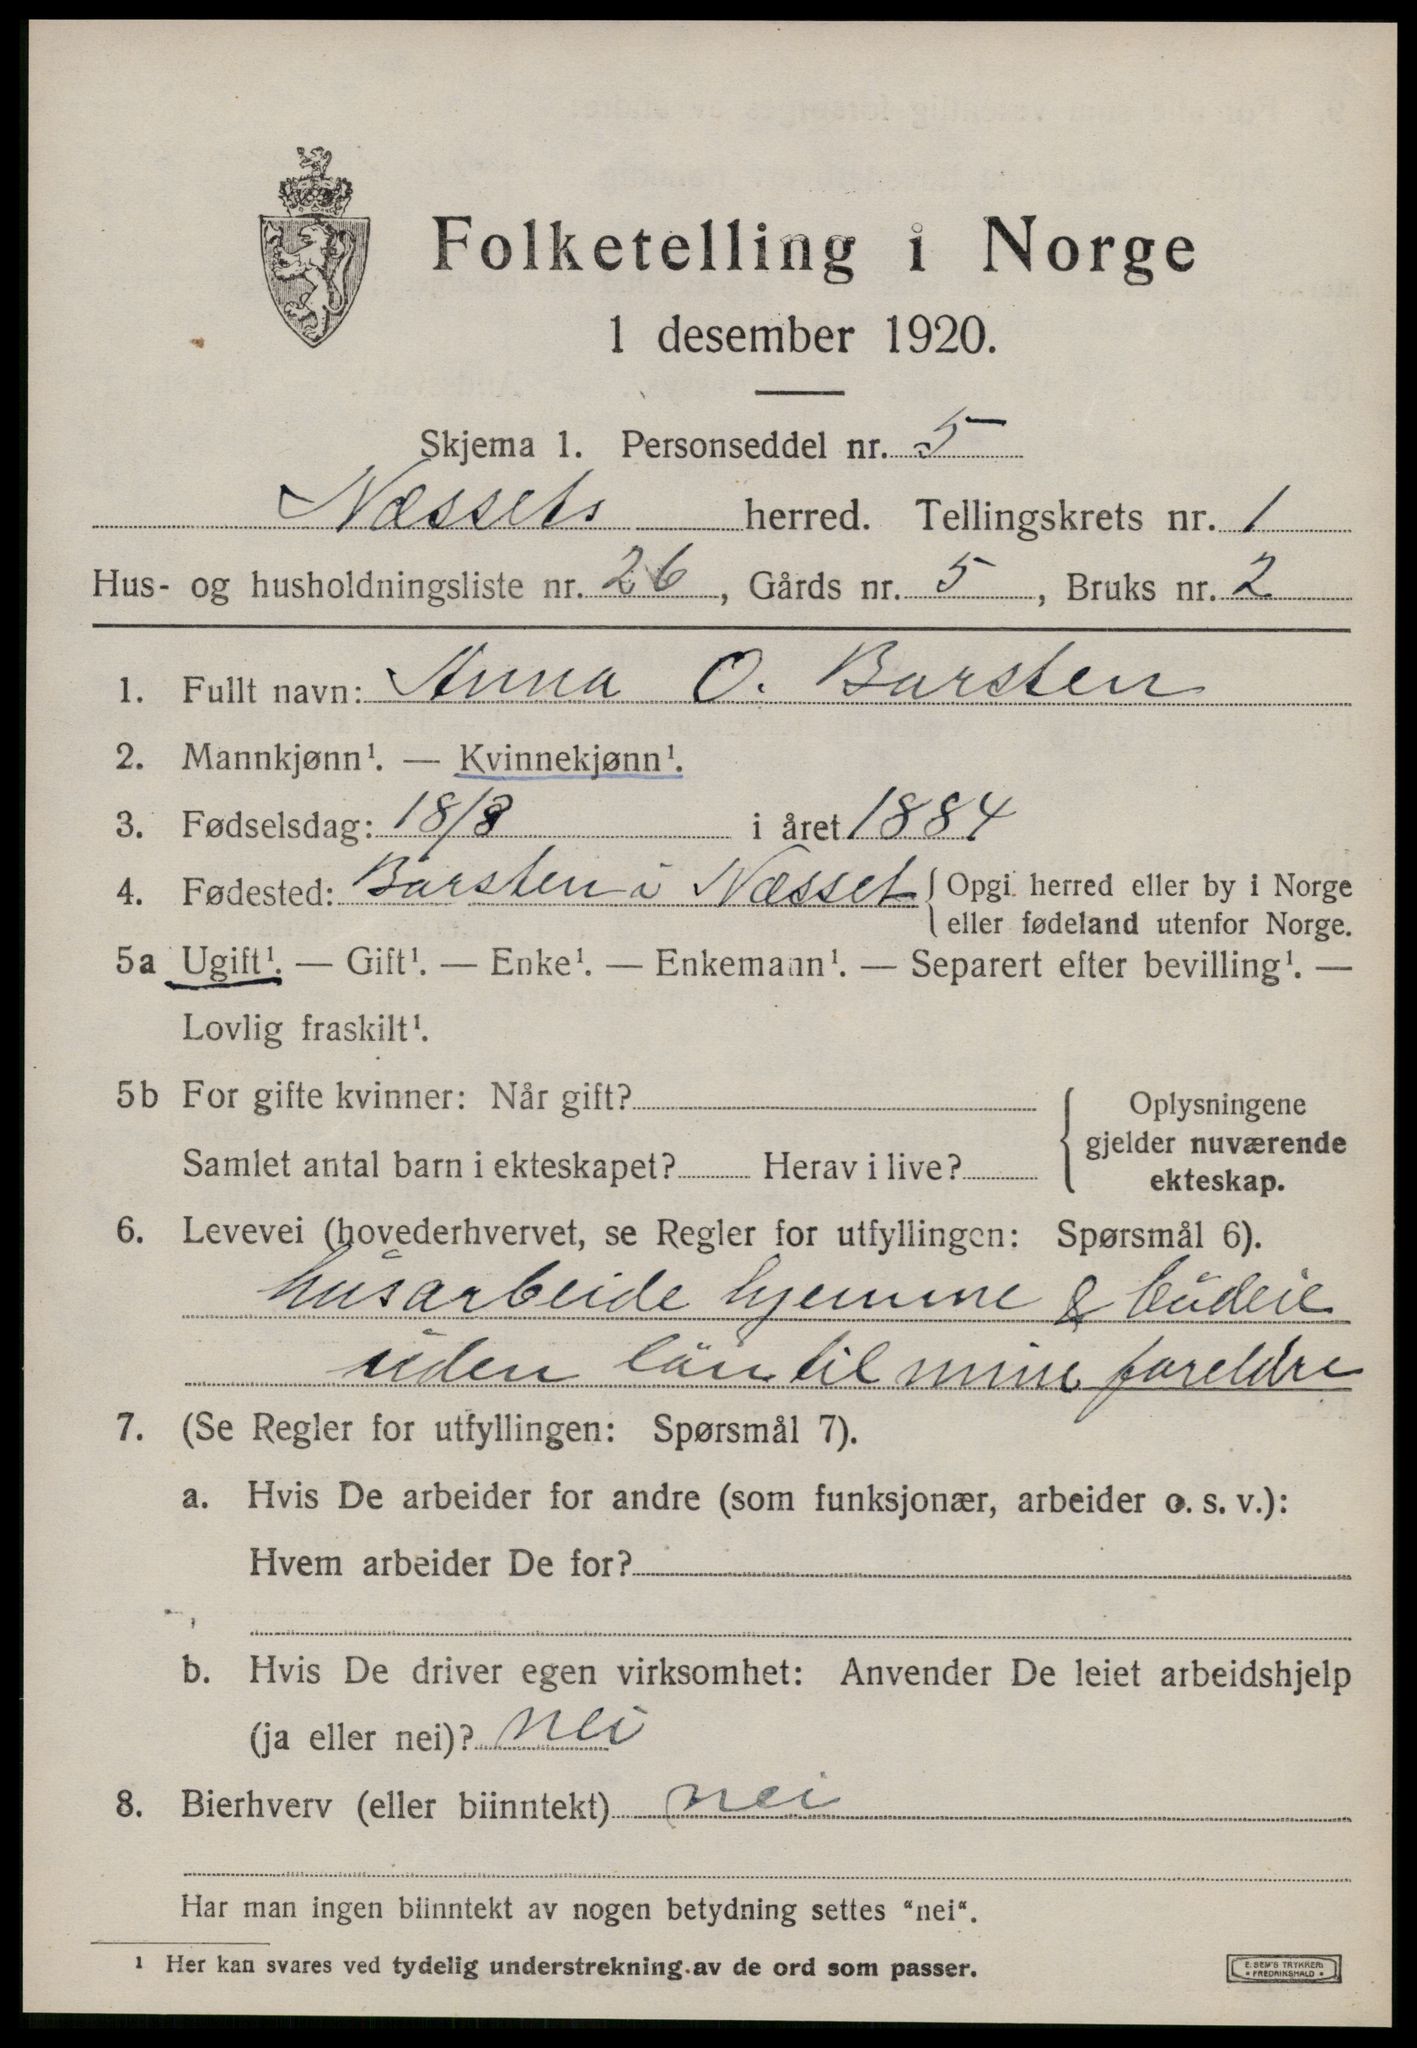 Folketelling i Norge
1 desember 1920.
Skjema 1. Personseddel nr. 5
Næssets herred. Tellingskrets nr. 1
Hus- og husholdningsliste nr. 26, Gårds nr. 5, Bruks nr. 2
1. Fullt navn: Anna O. Barsten
2. Mannkjønn¹. — Kvinnekjønn¹.
3. Fødselsdag: 18/8 i året 1884
4. Fødested: Barsten i Næsset { Opgi herred eller by i Norge
eller fødeland utenfor Norge.
5a Ugift¹. — Gift¹. — Enke¹. — Enkemann¹. — Separert efter bevilling¹. —
Lovlig fraskilt¹.
5b For gifte kvinner: Når gift?
Samlet antal barn i ekteskapet? Herav i live?
{ Oplysningene
gjelder nuværende
ekteskap.
6. Levevei (hovederhvervet, se Regler for utfyllingen: Spørsmål 6).
husarbeide hjemme & budeie
uden løn til mine foreldre
7. (Se Regler for utfyllingen: Spørsmål 7).
a. Hvis De arbeider for andre (som funksjonær, arbeider o. s. v.):
Hvem arbeider De for?
b. Hvis De driver egen virksomhet: Anvender De leiet arbeidshjelp
(ja eller nei)? nei
8. Bierhverv (eller biinntekt) nei
Har man ingen biinntekt av nogen betydning settes "nei".
¹ Her kan svares ved tydelig understrekning av de ord som passer.
E. SEM'S TRYKKERI
FREDRIKSHALD